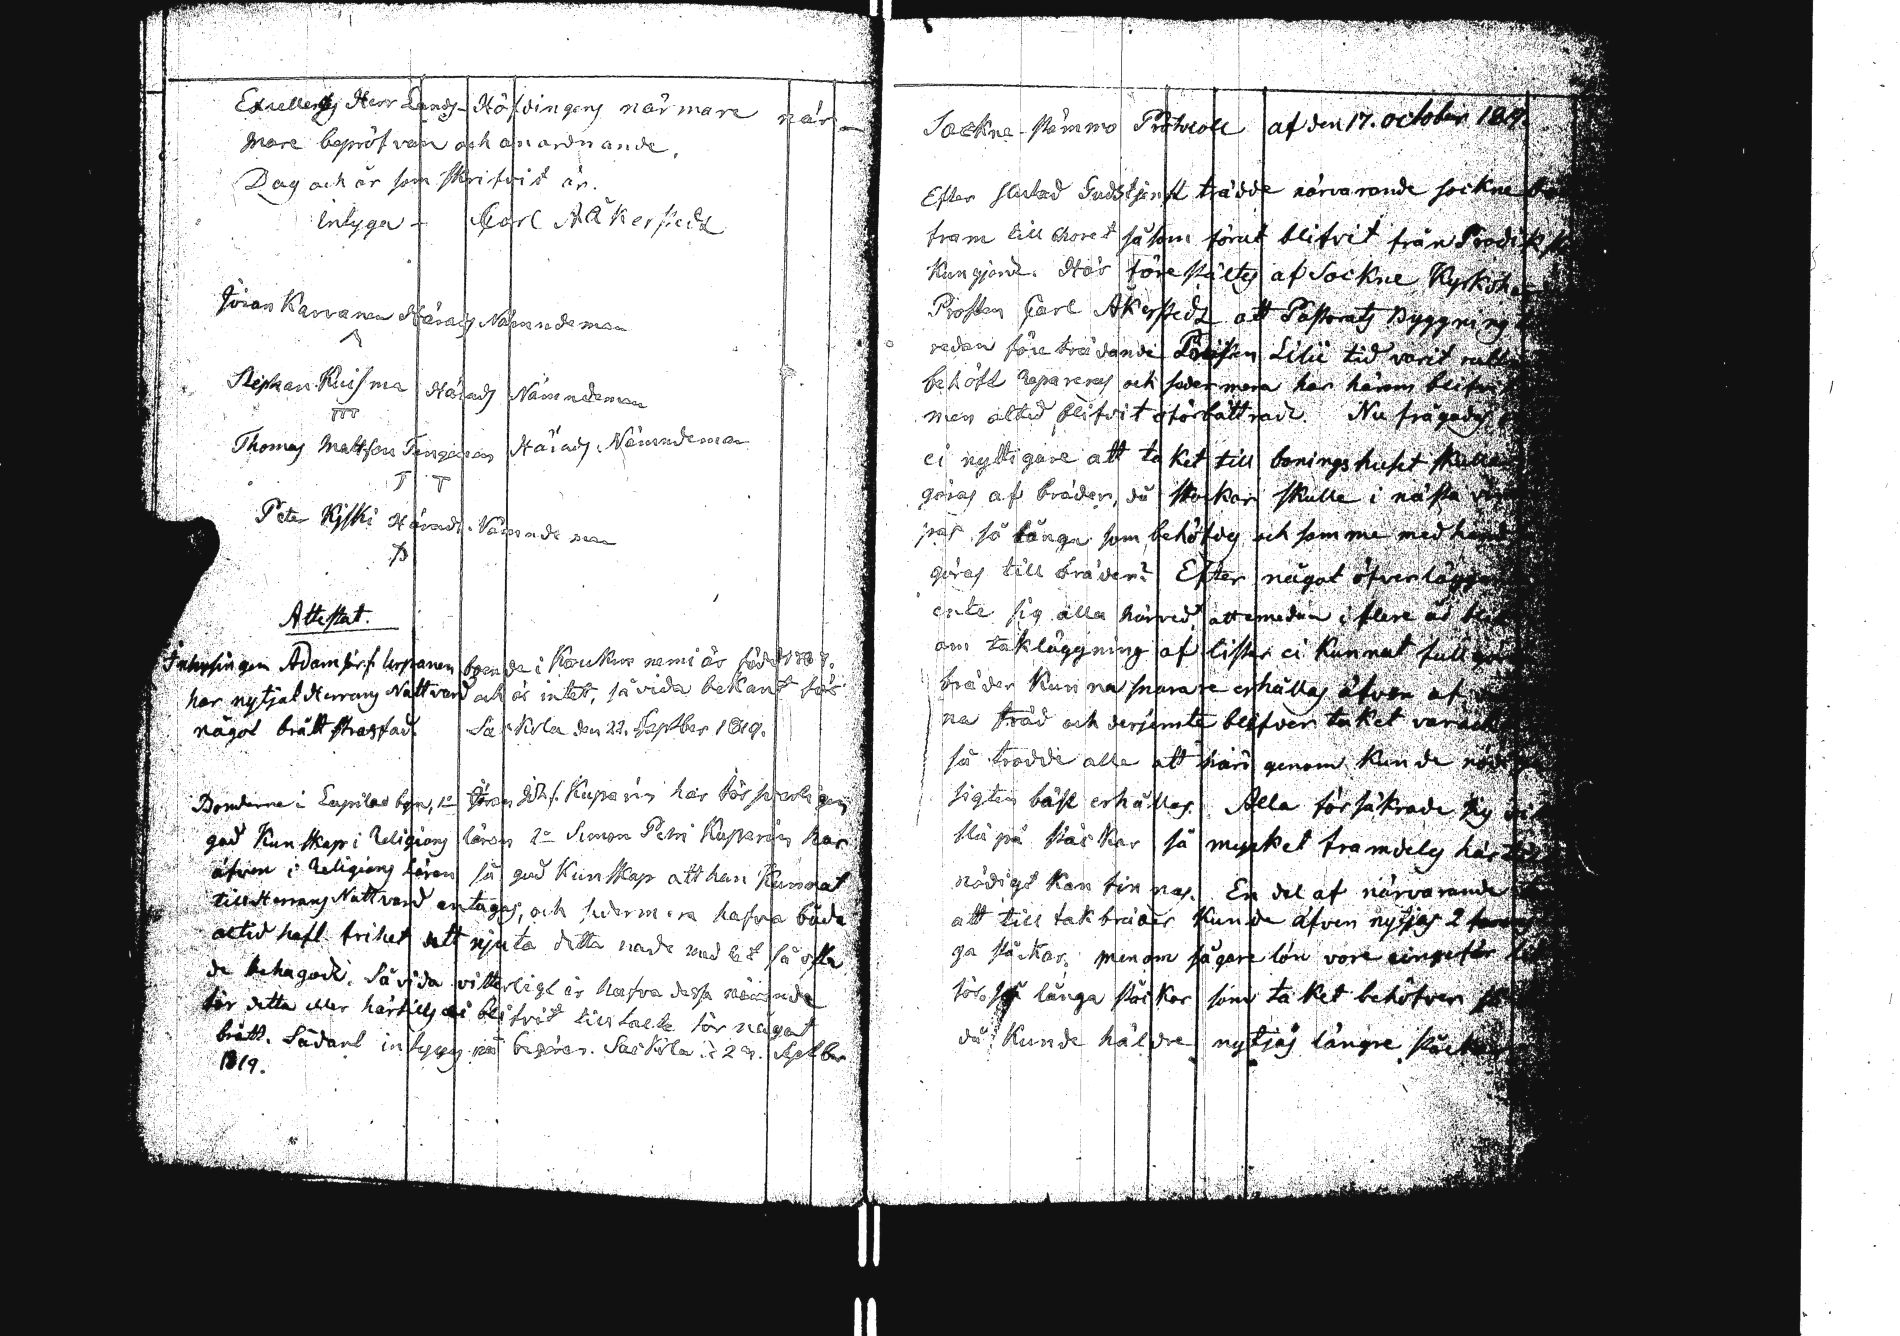 Excellentz Herr Lands-Höfdingens närmare när-
mare bepröfvan och anordnande.
Dag och år som skrifvit är.
intyga - Carl Åkerstedt
Jöran Karvanen Härads Nämndeman
Stephan Kuisma Härads Nämndeman
Thomas Mattsson Härads Nämndeman
Peter Kiski Härads Nämndeman
Attestat.
Inhysingen Adam boende i Koukunnemi är född 1787.
har nytjat Herrans Nattvard och är intet, så vida bekant för
något brått straffad. Sackola den 22. Septber 1819.
Bönderne i Lapilax byn, 1o Jöran Joh:s. Kuparin har försvarligen
god Kunskap i Religions läran 2o Simon Petri Kuparin har
äfven i Religions Läran så god Kunskap att han Kunnat
till Herrans Nattvard antagas, och sedermera hafva både
altid haft frihet att njuta detta nåde medlet så ofta
de behagadt. Så vida vitterligt är hafva dessa nämnde
för detta eller härtills ei blifvit tilltalte för något
brått. Sådant intygas på begäran. Sackola d. 29. Septber
1819.
Sockne-stämmo Protocoll af den 17. October 1819.
Efter slutad Gudstjenst trädde närvarande sockne
fram till Choret såsom förut blifvit från Predik
Kungjordt. Här föreställtes af Sockne Kyrkoh
Prosten Carl Åkerstedt att Pastorats Byggning
redan företrädande Prosten Lilii tid varit
behöft repareras och sedermera har härom blifvit
men altid blifvit oförbättrade. Nu frågades,
ei nyttigare att taket till boningshuset skulle
göras af bräder, då stockar skulle i nästa
så långa som behöfdes och somme med hand
göras till bräder? Efter något öfverläggn
ente sig alla härved, att emedan i flere år
om takläggning af lister ei Kunnat fullgöra
bräder Kunna snarare erhållas äfven af
na träd och derjemte blifver taket
så trodde alla att härigenom Kunde
sigten bäst erhållas. Alla försäkrade sig
stå på stockar så mycket framdeles här
nödigt Kan finnas. En del af närvarande
att till takbräder Kunde äfven nytjas 2
ga stockar. men om sågare lön vore
för så långa stockar som taket behöfver
då Kunde häldre nytjas längre stockar